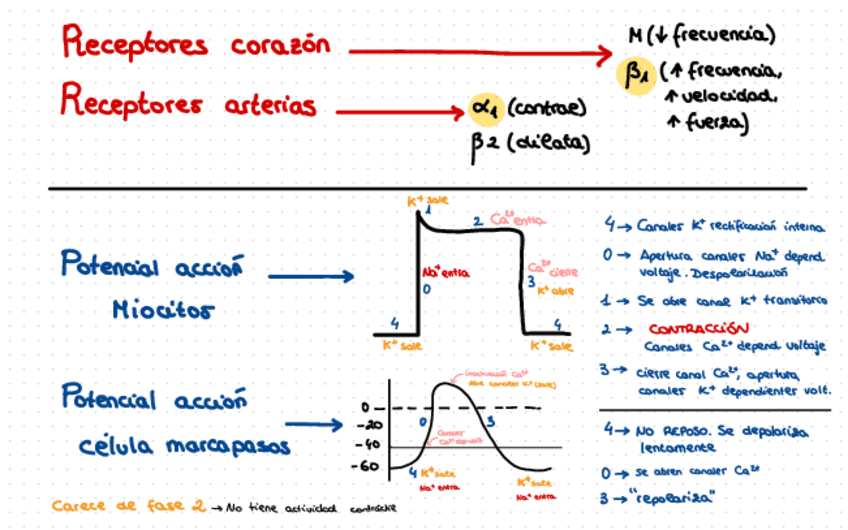 Receptores corazón
M (↓ frecuencia)
β1 (↑ frecuencia,
↑ velocidad,
↑ fuerza)
Receptores arterias
α1 (contrae)
β2 (dilata)
Potencial acción
Miocitos
K+ sale
1
2 Ca2+ entra
Na+ entra
0
Ca2+ cierre
3
K+ abre
4
K+ sale
4
K+ sale
4 → Canales K+ rectificación interna
0 → Apertura canales Na+ depend
voltaje. Despolarización
1 → Se abre canal K+ transitorio
2 → CONTRACCIÓN
Canales Ca2+ depend voltaje
3 → cierre canal Ca2+, apertura
canales K+ dependientes volt.
Potencial acción
célula marcapasos
inactivación Ca2+
abre canales K+ (sale)
0
-20
-40
-60
0
3
Canales
Ca2+ dep. volt
4 K+ sale
Na+ entra
K+ sale
Na+ entra
4 → NO REPOSO. Se depolariza
lentamente
0 → se abren canales Ca2+
3 → "repolariza"
Carece de fase 2 → No tiene actividad contráctil